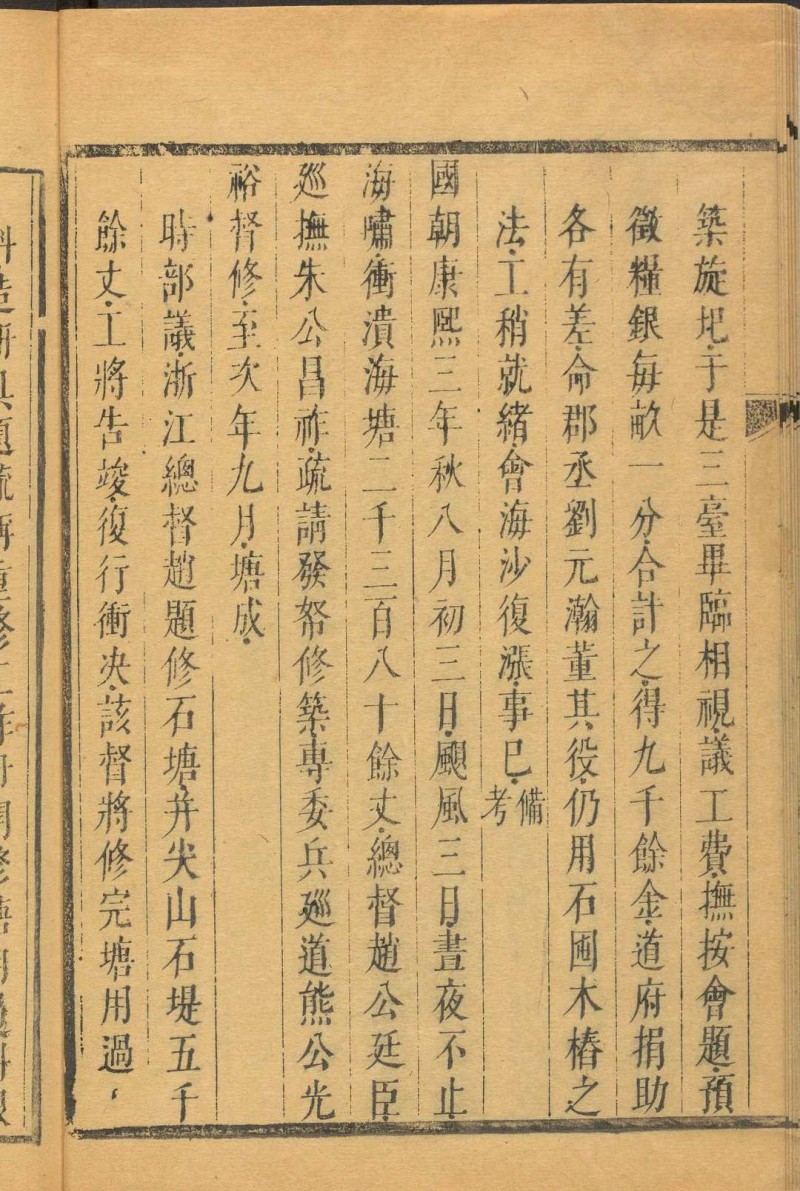 築旋圯于是三臺畢臨相視議工費撫按會題預
徵糧銀每畝一分合計之得九千餘金道府捐助
各有差命郡丞劉元瀚董其役仍用石囤木樁之
法工稍就緒會海沙復漲事已備考
國朝康熙三年秋八月初三日颶風三日晝夜不止
海嘯衝潰海塘二千三百八十餘丈總督趙公廷臣
廵撫朱公昌祚疏請發帑修築專委兵廵道熊公光
裕督修至次年九月塘成
時部議浙江總督趙題修石塘并尖山石堤五千
餘丈工將告竣復行衝决該督將修完塘用過